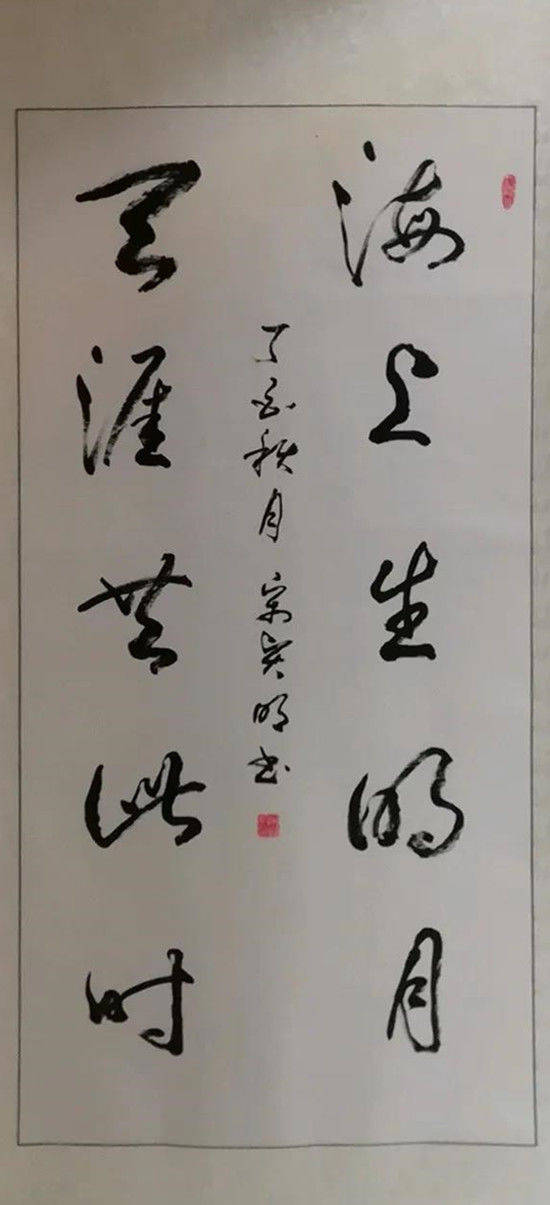 海上生明月
天涯共此时
丁酉秋月 宋安明书